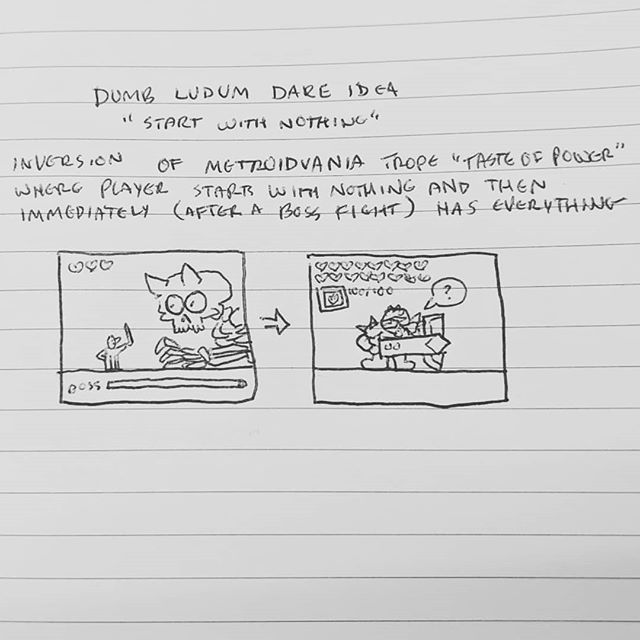 DUMB LUDUM DARE IDEA
"START WITH NOTHING"
INVERSION OF METROIDVANIA TROPE "TASTE OF POWER"
WHERE PLAYER STARTS WITH NOTHING AND THEN
IMMEDIATELY (AFTER A BOSS FIGHT) HAS EVERYTHING
?
BOSS